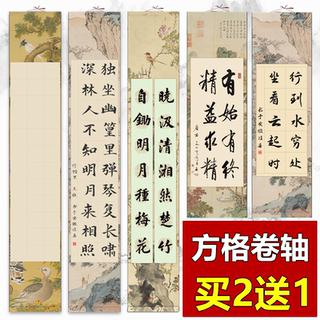 独坐幽篁里弹琴复长啸
深林人不知明月来相照
曉汲清湘然楚竹
自鋤明月種梅花
有始有终
精益求精
行到水穷处
坐看云起时
书于安徽泾县
方格卷轴
买2送1